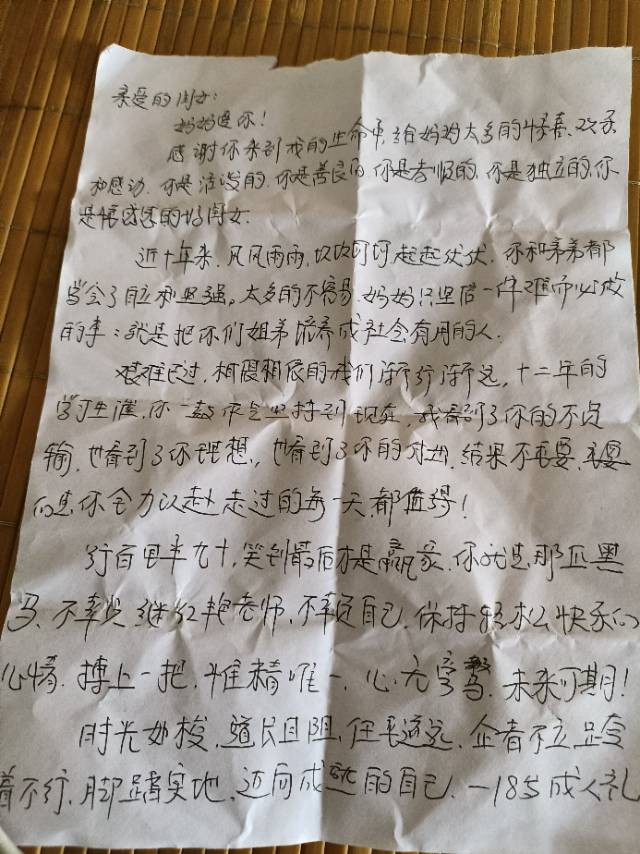 亲爱的闺女:
妈妈爱你!
感谢你来到我的生命中,给妈妈太多的惊喜、欢乐
和感动.你是活泼的.你是善良的你是孝顺的.你是独立的.你
是懂感恩的好闺女.
近十年来.风风雨雨,坎坎坷坷起起伏伏.你和弟弟都
学会了自立和坚强。太多的不容易.妈妈只坚信一件难而必做
的事:就是把你们姐弟培养成社会有用的人.
艰难已过,相濡相依的我们渐行渐远,十二年的
学习生涯,你一鼓作气坚持到现在,我看到了你的不负
输,也看到了你理想,,也看到了你的付出.结果不重要.重要
的是你全力以赴走过的每一天都值得!
行百里半九十,笑到最后才是赢家.你就是那匹黑
马、不辜负继红艳老师,不辜负自己.保持轻松快乐的
心情.搏上一把,惟精唯一、心无旁骛.未来可期!
时光如梭.道长且阻,任重道远.企者不立.跨
着不行.脚踏实地、迈向成就的自己.一185成人礼